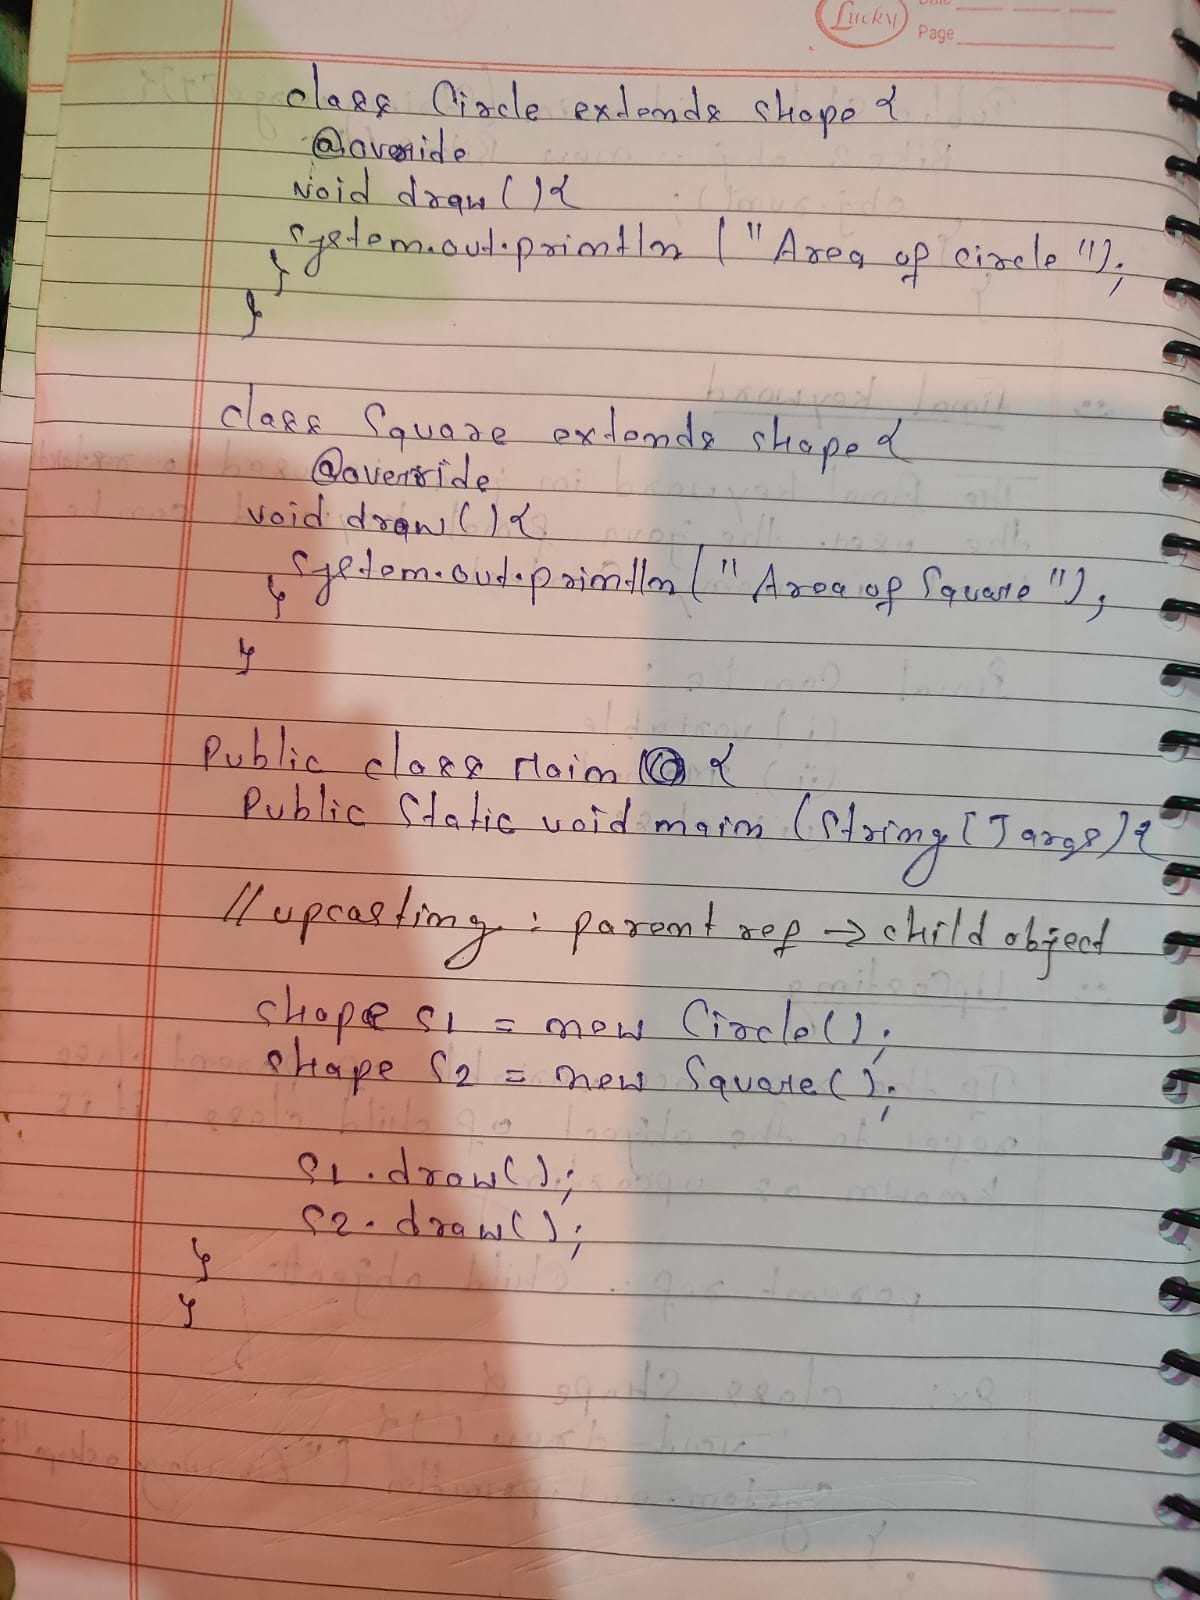 Lucky
Page
class Circle extends shape {
@overide
void draw() {
System.out.println ("Area of circle");
}
}
class Square extends shape {
@override
void draw() {
System.out.println ("Area of Square");
}
}
Public class Main {
Public Static void main (String [] args) {
// upcasting : parent ref → child object
shape s1 = new Circle();
shape s2 = new Square();
s1.draw();
s2.draw();
}
}